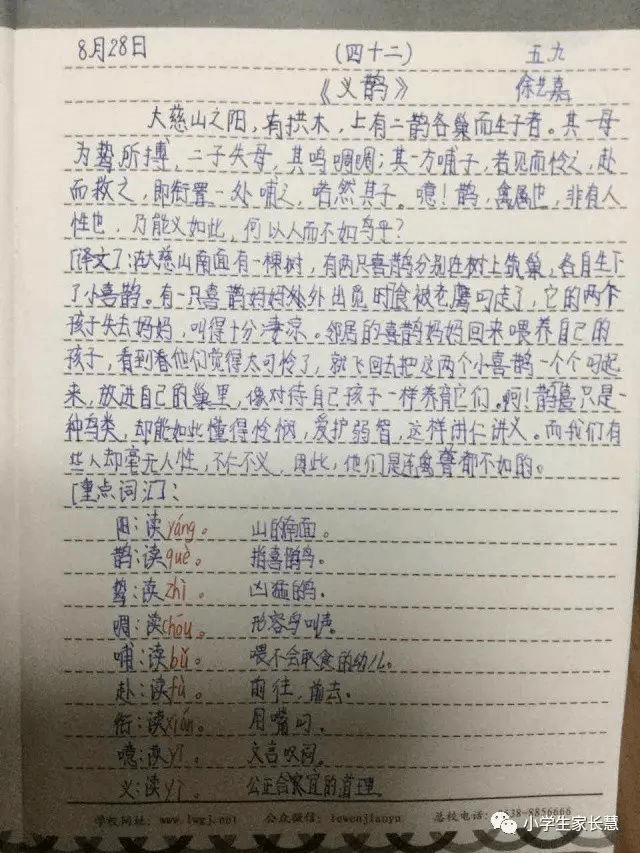 8月28日 (四十二) 五九
《义鹊》 徐艺嘉
大慈山之阳，有拱木，上有二鹊各巢而生子者。其一母
为鸷所搏，二子失母，其鸣啁啁；其一方哺子，若见而怜之，赴
而救之，即衔置一处哺之，啫然其子。噫！鹊，禽属也，非有人
性也，乃能义如此，何以人而不如鸟乎？
[译文]：在大慈山南面有一棵树，有两只喜鹊分别在树上筑巢，各自生下
了小喜鹊。有一只喜鹊妈妈外出觅食时被老鹰叼走了，它的两个
孩子失去妈妈，叫得十分凄凉。邻居的喜鹊妈妈回来喂养自己的
孩子，看到看他们觉得太可怜了，就飞回去把这两个小喜鹊一个个叼起
来，放进自己的巢里，像对待自己孩子一样养育它们。啊！鹊喜只是一
种鸟类，却能如此懂得怜悯，爱护弱智，这样讲仁讲义。而我们有
些人却毫无人性，不仁不义，因此，他们是连禽兽都不如的。
[重点词汇]：
阳：读yáng。 山的南面。
鹊：读què。 指喜鹊鸟。
鸷：读zhì。 凶猛的鸟。
啁：读zhōu。 形容鸟叫声。
哺：读bǔ。 喂不会取食的幼儿。
赴：读fù。 前往，前去。
衔：读xián。 用嘴叼。
噫：读yī。 文言叹词。
义：读yì。 公正合宜的道理。
学校网址：www.lwgj.net 公众微信：lewenjiaoyu 总校电话：0538-8856666
小学生家长慧